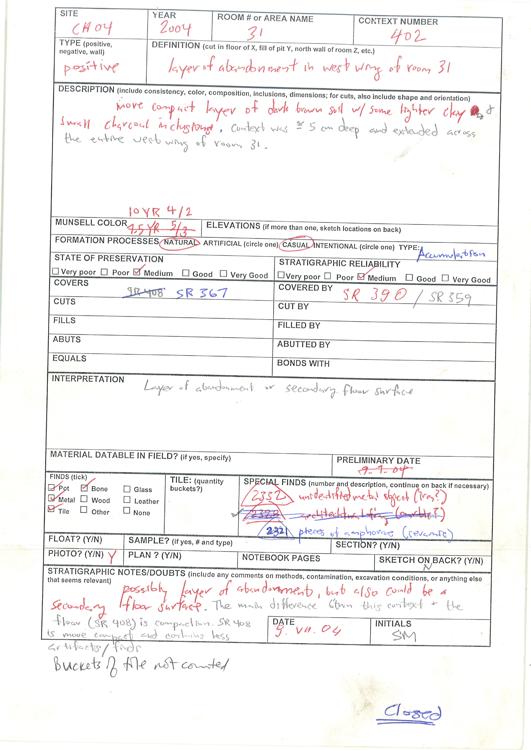 SITE YEAR ROOM # or AREA NAME CONTEXT NUMBER
CH04 2004 31 402
TYPE (positive, negative, wall) DEFINITION (cut in floor of X, fill of pit Y, north wall of room Z, etc.)
positive Layer of abandonment in west wing of room 31
DESCRIPTION (include consistency, color, composition, inclusions, dimensions; for cuts, also include shape and orientation)
more compact layer of dark brown soil w/ some lighter clay &
small charcoal inclusions. Context was ≅ 5 cm deep and extended across
the entire west wing of room 31.
10 YR 4/2
MUNSELL COLOR 7.5 YR 5/3 ELEVATIONS (if more than one, sketch locations on back)
FORMATION PROCESSES NATURAL ARTIFICIAL (circle one) CASUAL INTENTIONAL (circle one) TYPE: Accumulation
STATE OF PRESERVATION STRATIGRAPHIC RELIABILITY
Very poor Poor Medium Good Very Good Very poor Poor Medium Good Very Good
COVERS SR 408 SR 367 COVERED BY SR 390 / SR 359
CUTS CUT BY
FILLS FILLED BY
ABUTS ABUTTED BY
EQUALS BONDS WITH
INTERPRETATION Layer of abandonment or secondary floor surface
MATERIAL DATABLE IN FIELD? (if yes, specify) PRELIMINARY DATE
9.7.04
FINDS (tick) TILE: (quantity buckets?) SPECIAL FINDS (number and description, continue on back if necessary)
Pot Bone Glass 2332 unidentified metal object (iron?)
Metal Wood Leather
Tile Other None 2321 pieces of amphorae (ceramic)
FLOAT? (Y/N) SAMPLE? (if yes, # and type) SECTION? (Y/N)
PHOTO? (Y/N) Y PLAN ? (Y/N) NOTEBOOK PAGES SKETCH ON BACK? (Y/N) N
STRATIGRAPHIC NOTES/DOUBTS (include any comments on methods, contamination, excavation conditions, or anything else that seems relevant)
possibly layer of abandonment, but also could be a
secondary floor surface. The main difference btwn this context + the
floor (SR 408) is compaction. SR 408
is more compact and contains less
artifacts/finds
DATE 9. VII. 04 INITIALS SM
Buckets of tile not counted
Closed